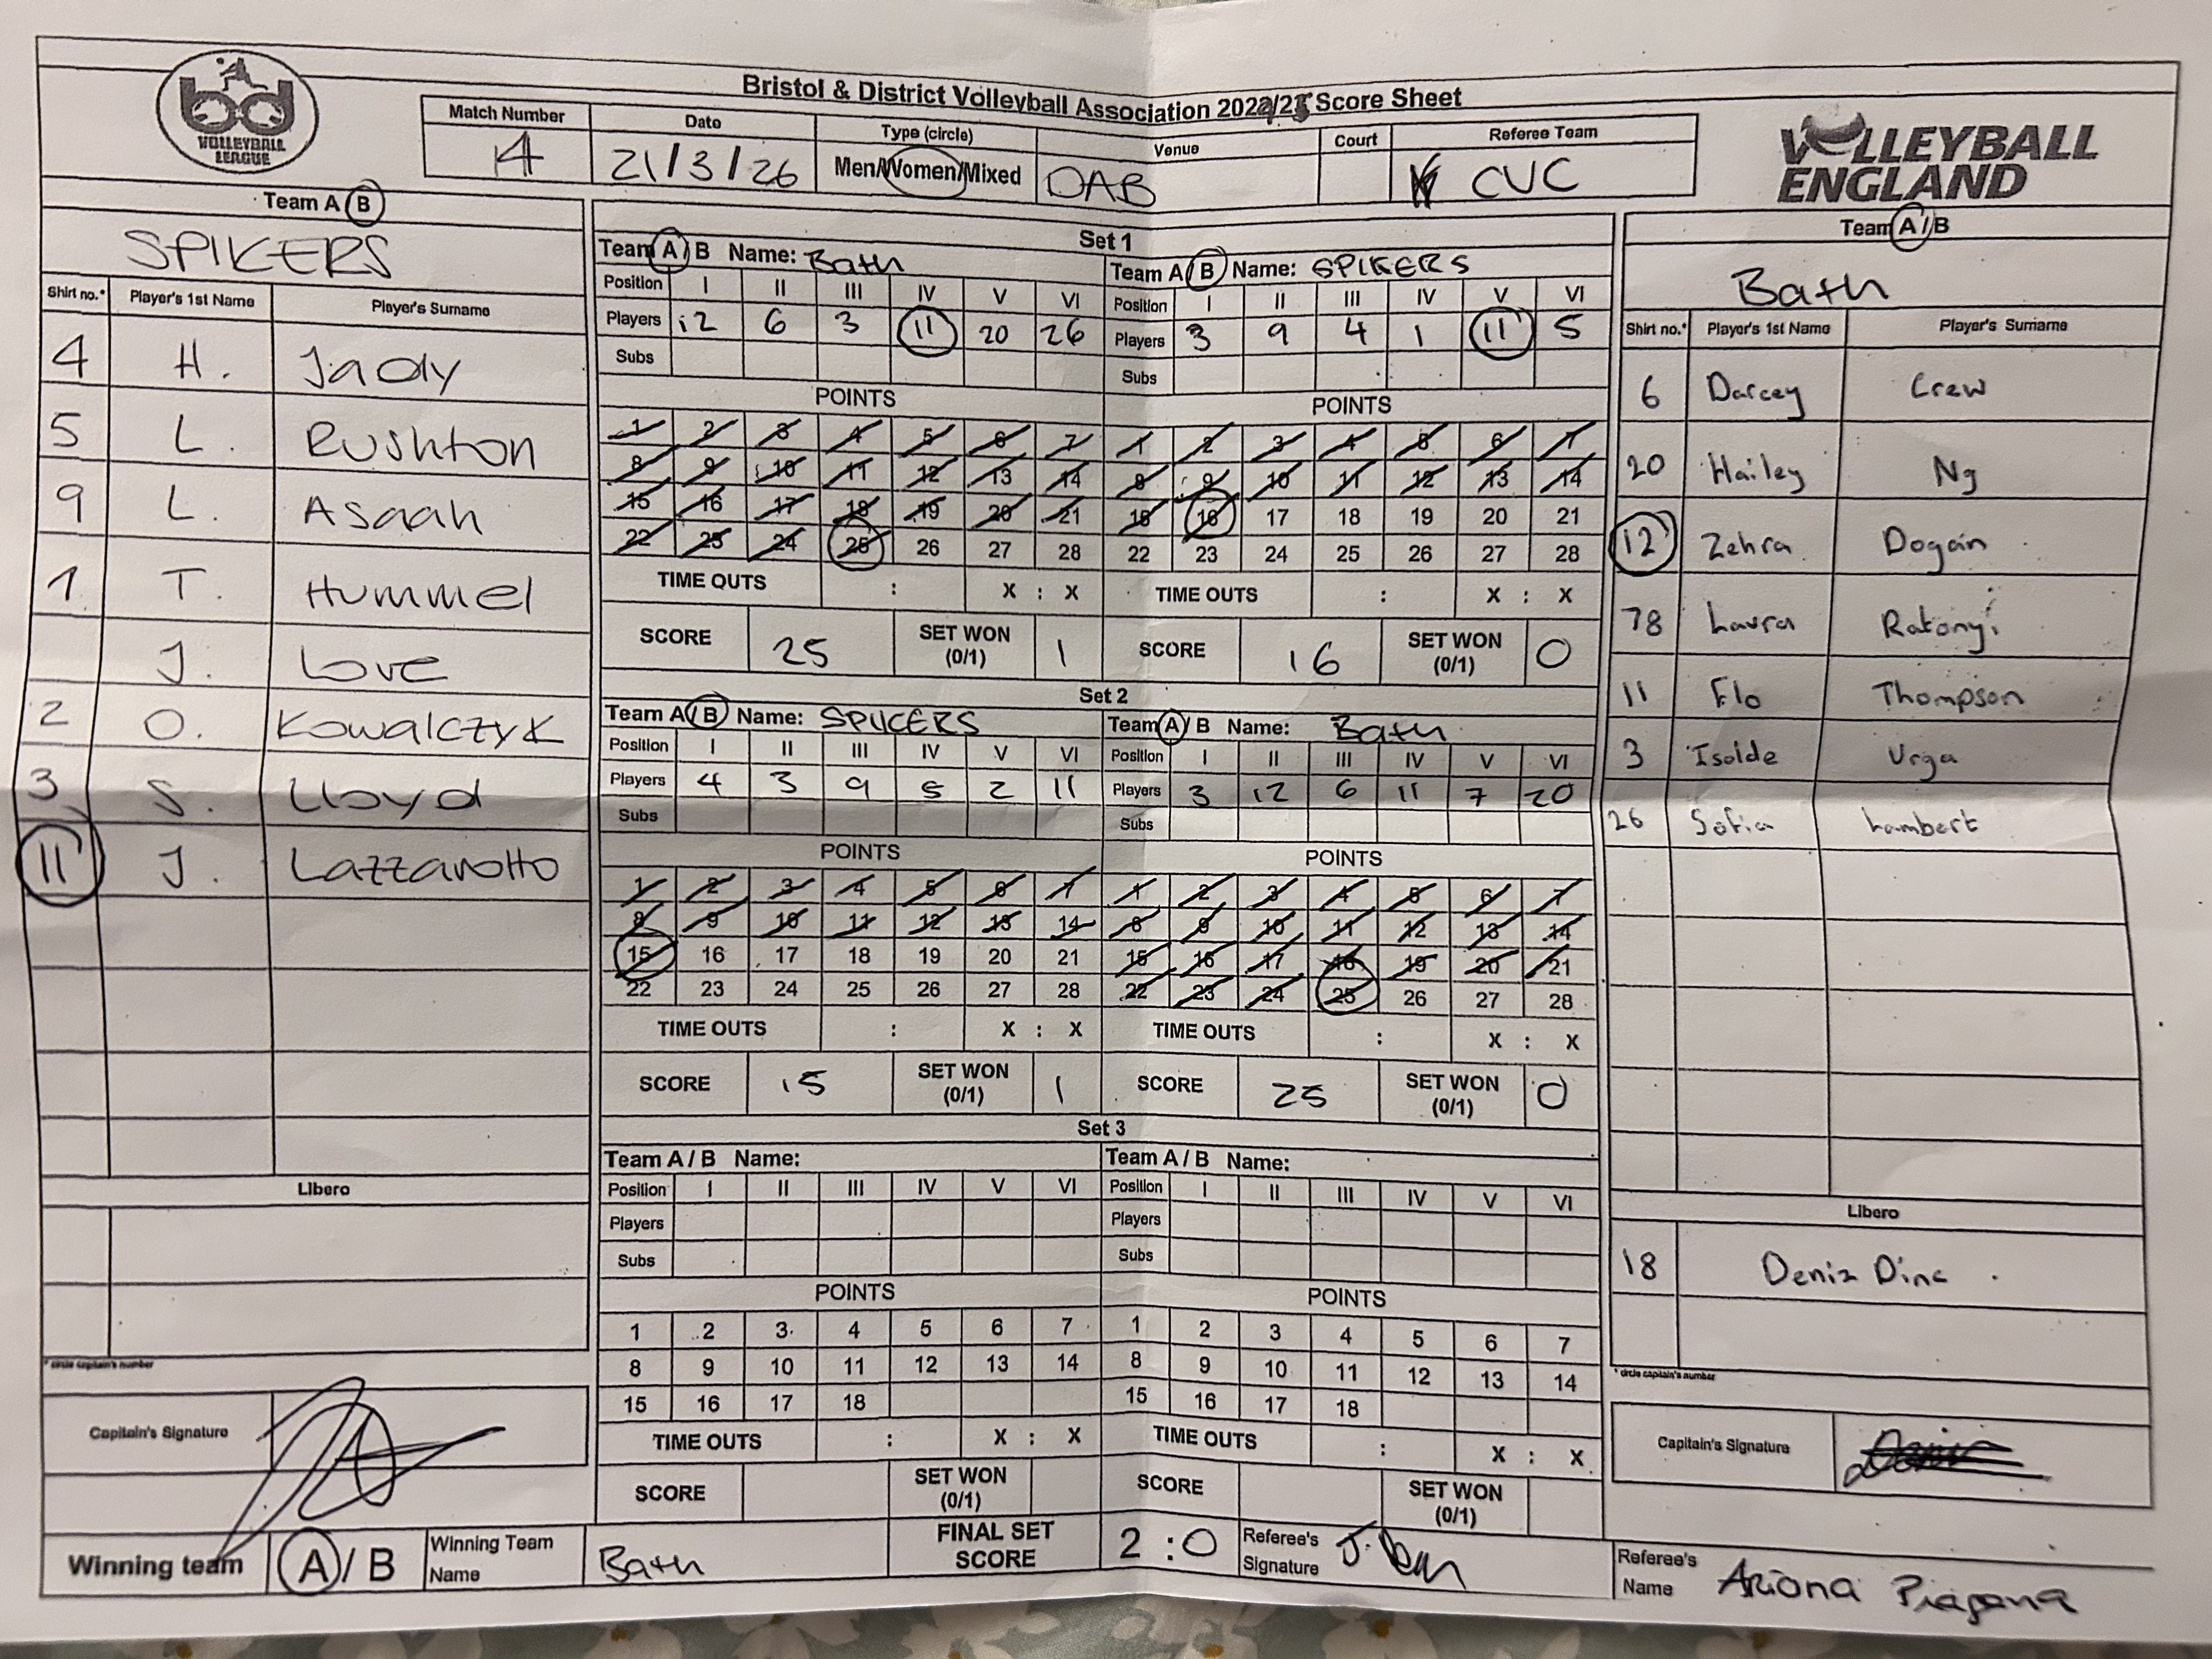 Bristol & District Volleyball Association 2022/25 Score Sheet
VOLLEYBALL LEAGUE
VOLLEYBALL ENGLAND
Match Number Date Type (circle) Venue Court Referee Team
14 21/3/26 Men/Women/Mixed OAB CVC
Team A B
SPIKERS
Shirt no.* Player's 1st Name Player's Surname
4 H. Jady
5 L. Rushton
9 L. Asaah
1 T. Hummel
J. Love
2 O. Kowalczyk
3 S. Lloyd
11 J. Lazzarotto
Libero
* circle captain's number
Capitain's Signature
Set 1
Team A / B Name: Bath
Position I II III IV V VI
Players 12 6 3 11 20 26
Subs
POINTS
1 2 3 4 5 6 7
8 9 10 11 12 13 14
15 16 17 18 19 20 21
22 23 24 25 26 27 28
TIME OUTS : X : X
SCORE 25 SET WON (0/1) 1
Team A / B Name: SPIKERS
Position I II III IV V VI
Players 3 9 4 1 11 5
Subs
POINTS
1 2 3 4 5 6 7
8 9 10 11 12 13 14
15 16 17 18 19 20 21
22 23 24 25 26 27 28
TIME OUTS : X : X
SCORE 16 SET WON (0/1) 0
Set 2
Team A / B Name: SPIKERS
Position I II III IV V VI
Players 4 3 9 5 2 11
Subs
POINTS
1 2 3 4 5 6 7
8 9 10 11 12 13 14
15 16 17 18 19 20 21
22 23 24 25 26 27 28
TIME OUTS : X : X
SCORE 15 SET WON (0/1) 1
Team A / B Name: Bath
Position I II III IV V VI
Players 3 12 6 11 7 20
Subs
POINTS
1 2 3 4 5 6 7
8 9 10 11 12 13 14
15 16 17 18 19 20 21
22 23 24 25 26 27 28
TIME OUTS : X : X
SCORE 25 SET WON (0/1) 0
Set 3
Team A / B Name:
Position I II III IV V VI
Players
Subs
POINTS
1 2 3 4 5 6 7
8 9 10 11 12 13 14
15 16 17 18
TIME OUTS : X : X
SCORE SET WON (0/1)
Team A / B Name:
Position I II III IV V VI
Players
Subs
POINTS
1 2 3 4 5 6 7
8 9 10 11 12 13 14
15 16 17 18
TIME OUTS : X : X
SCORE SET WON (0/1)
Team A / B
Bath
Shirt no.* Player's 1st Name Player's Surname
6 Darcey Crew
20 Hailey Ng
12 Zehra Dogan
78 Laura Ratonyi
11 Flo Thompson
3 Isolde Urga
26 Sofia Lambert
Libero
18 Deniz Dinc
* circle captain's number
Capitain's Signature
Winning team A / B Winning Team Name Bath FINAL SET SCORE 2 : 0 Referee's Signature Referee's Name Ariona